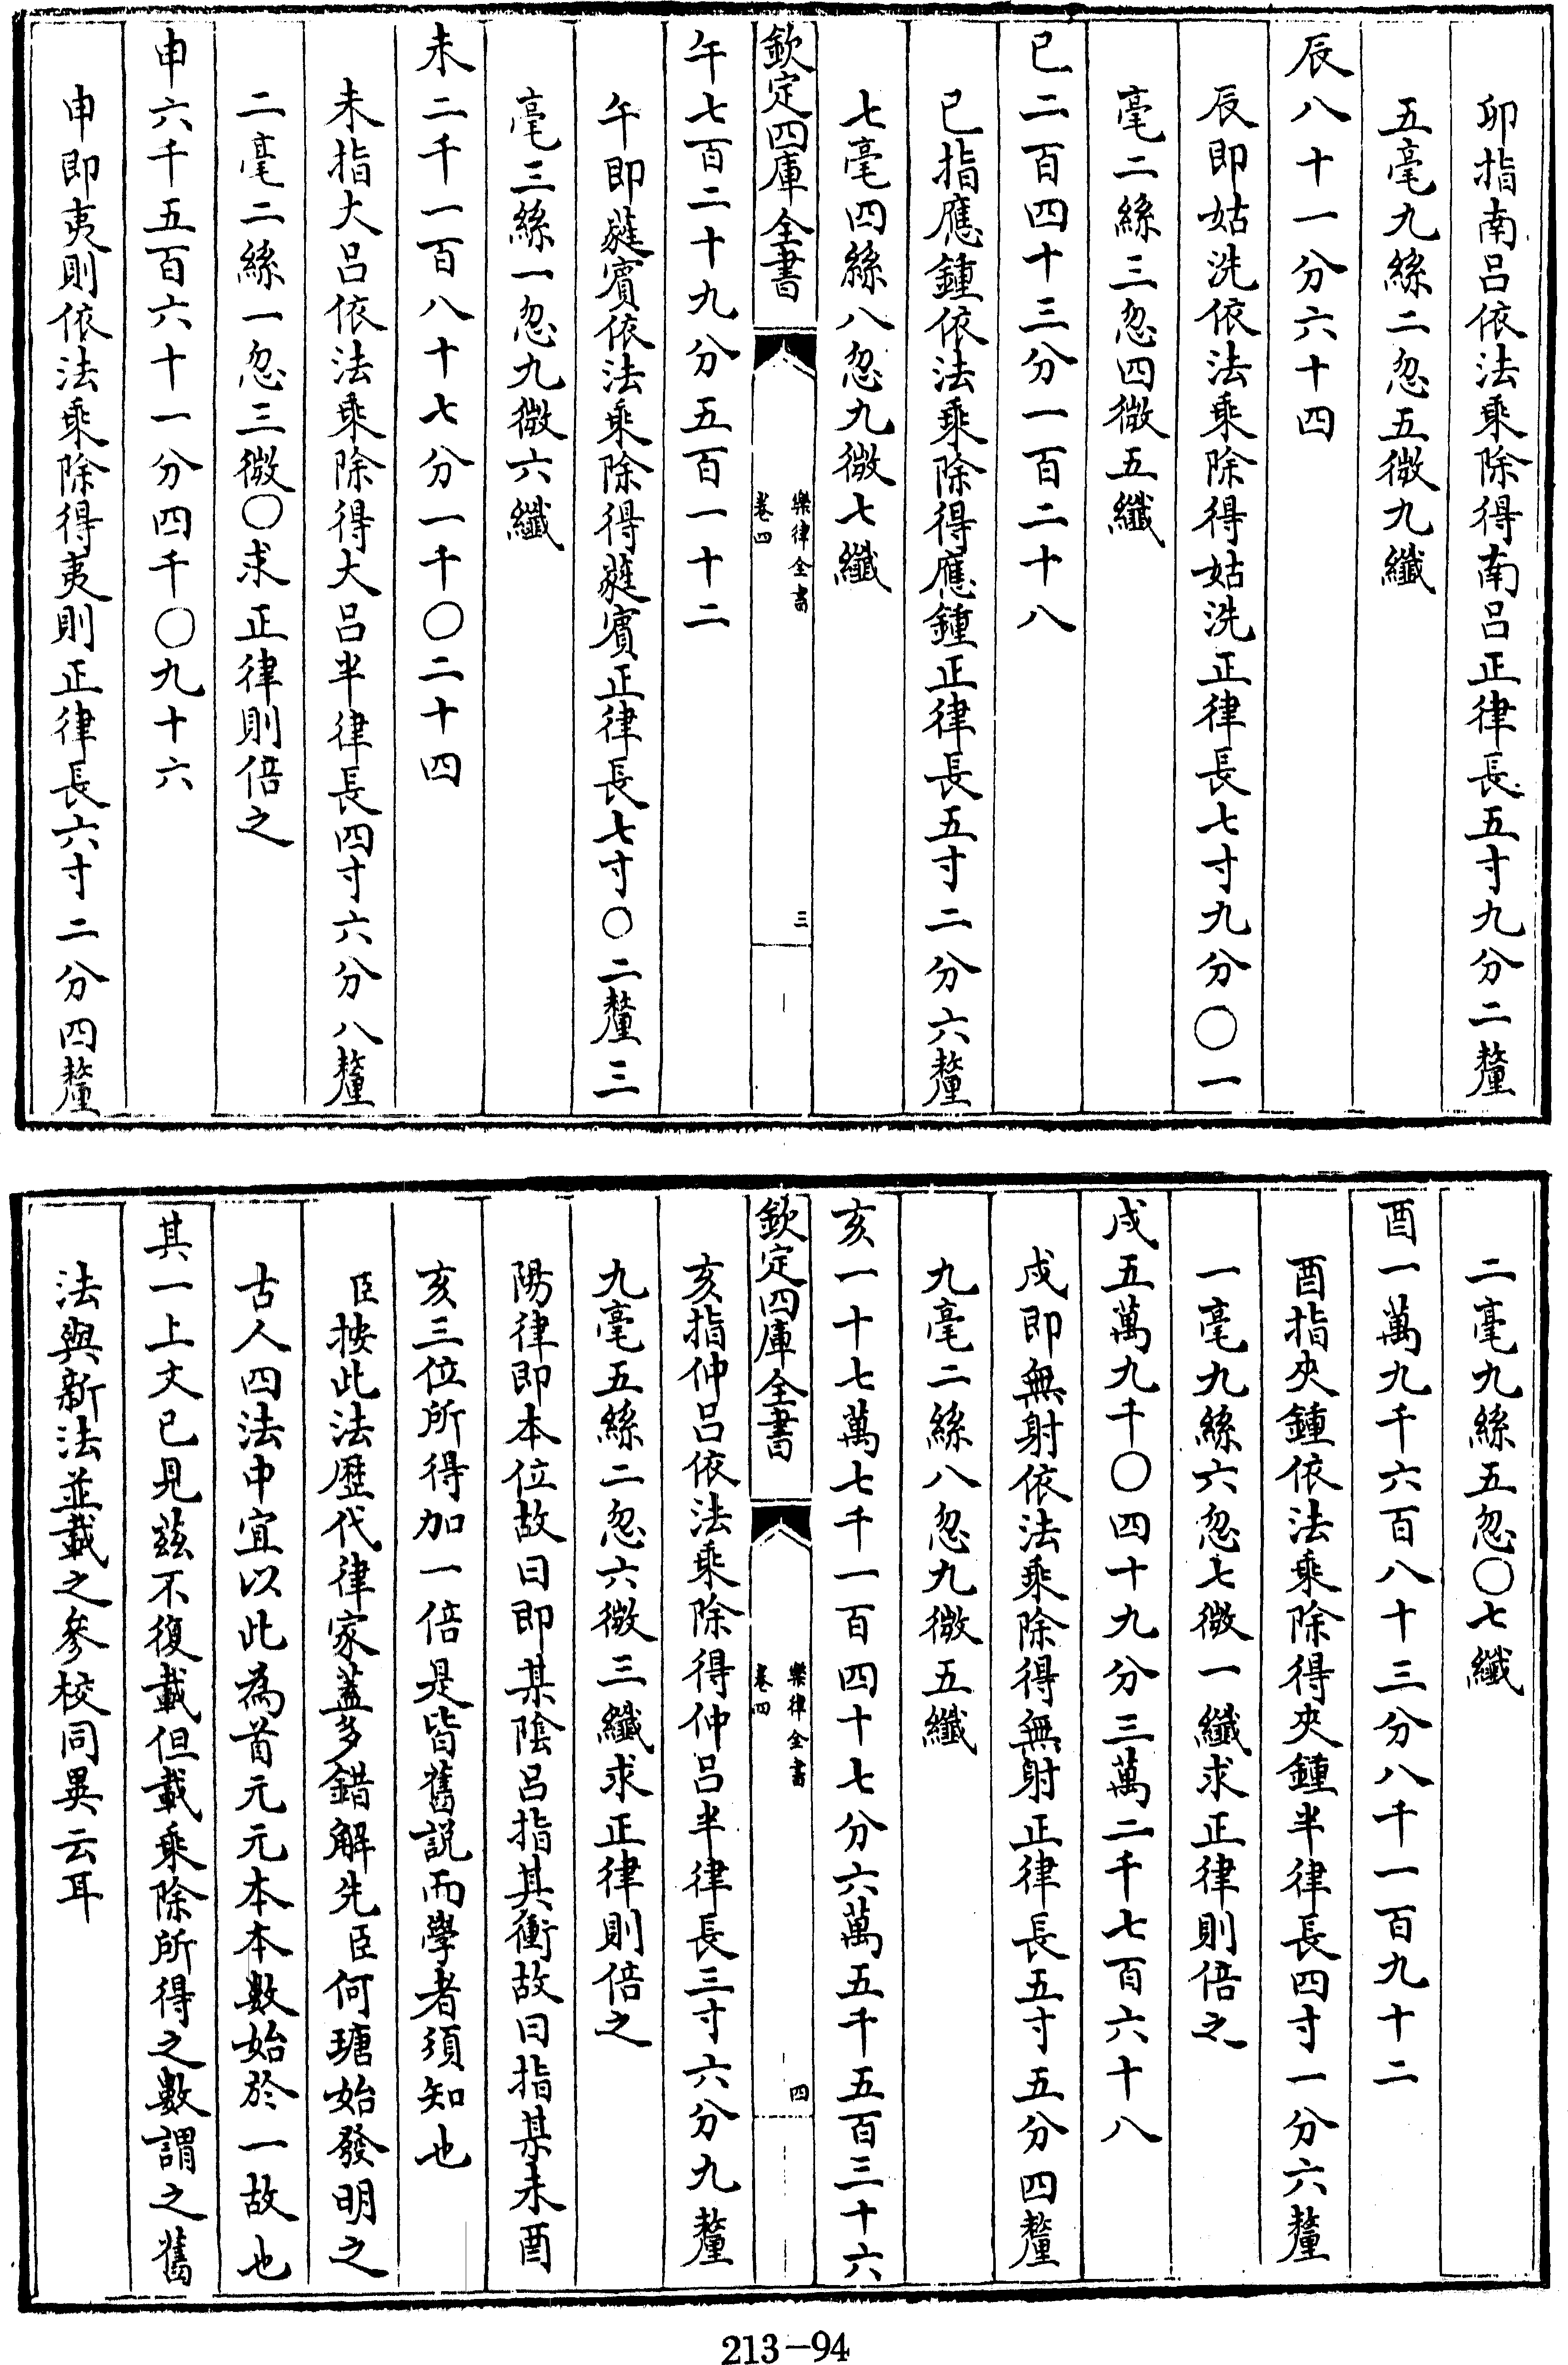 卯指南呂依法乘除得南呂正律長五寸九分二釐
五毫九絲二忽五微九纖
辰八十一分六十四
辰即姑洗依法乘除得姑洗正律長七寸九分〇一
毫二絲三忽四微五纖
巳二百四十三分一百二十八
巳指應鍾依法乘除得應鍾正律長五寸二分六釐
七毫四絲八忽九微七纖
欽定四庫全書
樂律全書
卷四
三
午七百二十九分五百一十二
午即蕤賓依法乘除得蕤賓正律長七寸〇二釐三
毫三絲一忽九微六纖
未二千一百八十七分一千〇二十四
未指大呂依法乘除得大呂半律長四寸六分八釐
二毫二絲一忽三微〇求正律則倍之
申六千五百六十一分四千〇九十六
申即夷則依法乘除得夷則正律長六寸二分四釐
二毫九絲五忽〇七纖
酉一萬九千六百八十三分八千一百九十二
酉指夾鍾依法乘除得夾鍾半律長四寸一分六釐
一毫九絲六忽七微一纖求正律則倍之
戌五萬九千〇四十九分三萬二千七百六十八
戌即無射依法乘除得無射正律長五寸五分四釐
九毫二絲八忽九微五纖
亥一十七萬七千一百四十七分六萬五千五百三十六
欽定四庫全書
樂律全書
卷四
四
亥指仲呂依法乘除得仲呂半律長三寸六分九釐
九毫五絲二忽六微三纖求正律則倍之
陽律即本位故曰即某陰呂指其衝故曰指某未酉
亥三位所得加一倍是皆舊說而學者須知也
臣按此法歷代律家蓋多錯解先臣何瑭始發明之
古人四法中宜以此為首元元本本數始於一故也
其一上文已見茲不復載但載乘除所得之數謂之舊
法與新法並載之參校同異云耳
213-94